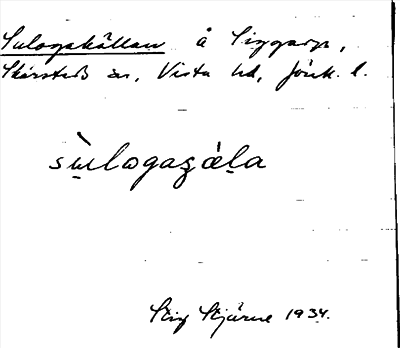 Sulogakällan å Siggarp,
Skärstads sn, Vista hd, Jönk. l.
sùlogaʒ́äla
Stig Stjärne 1934.